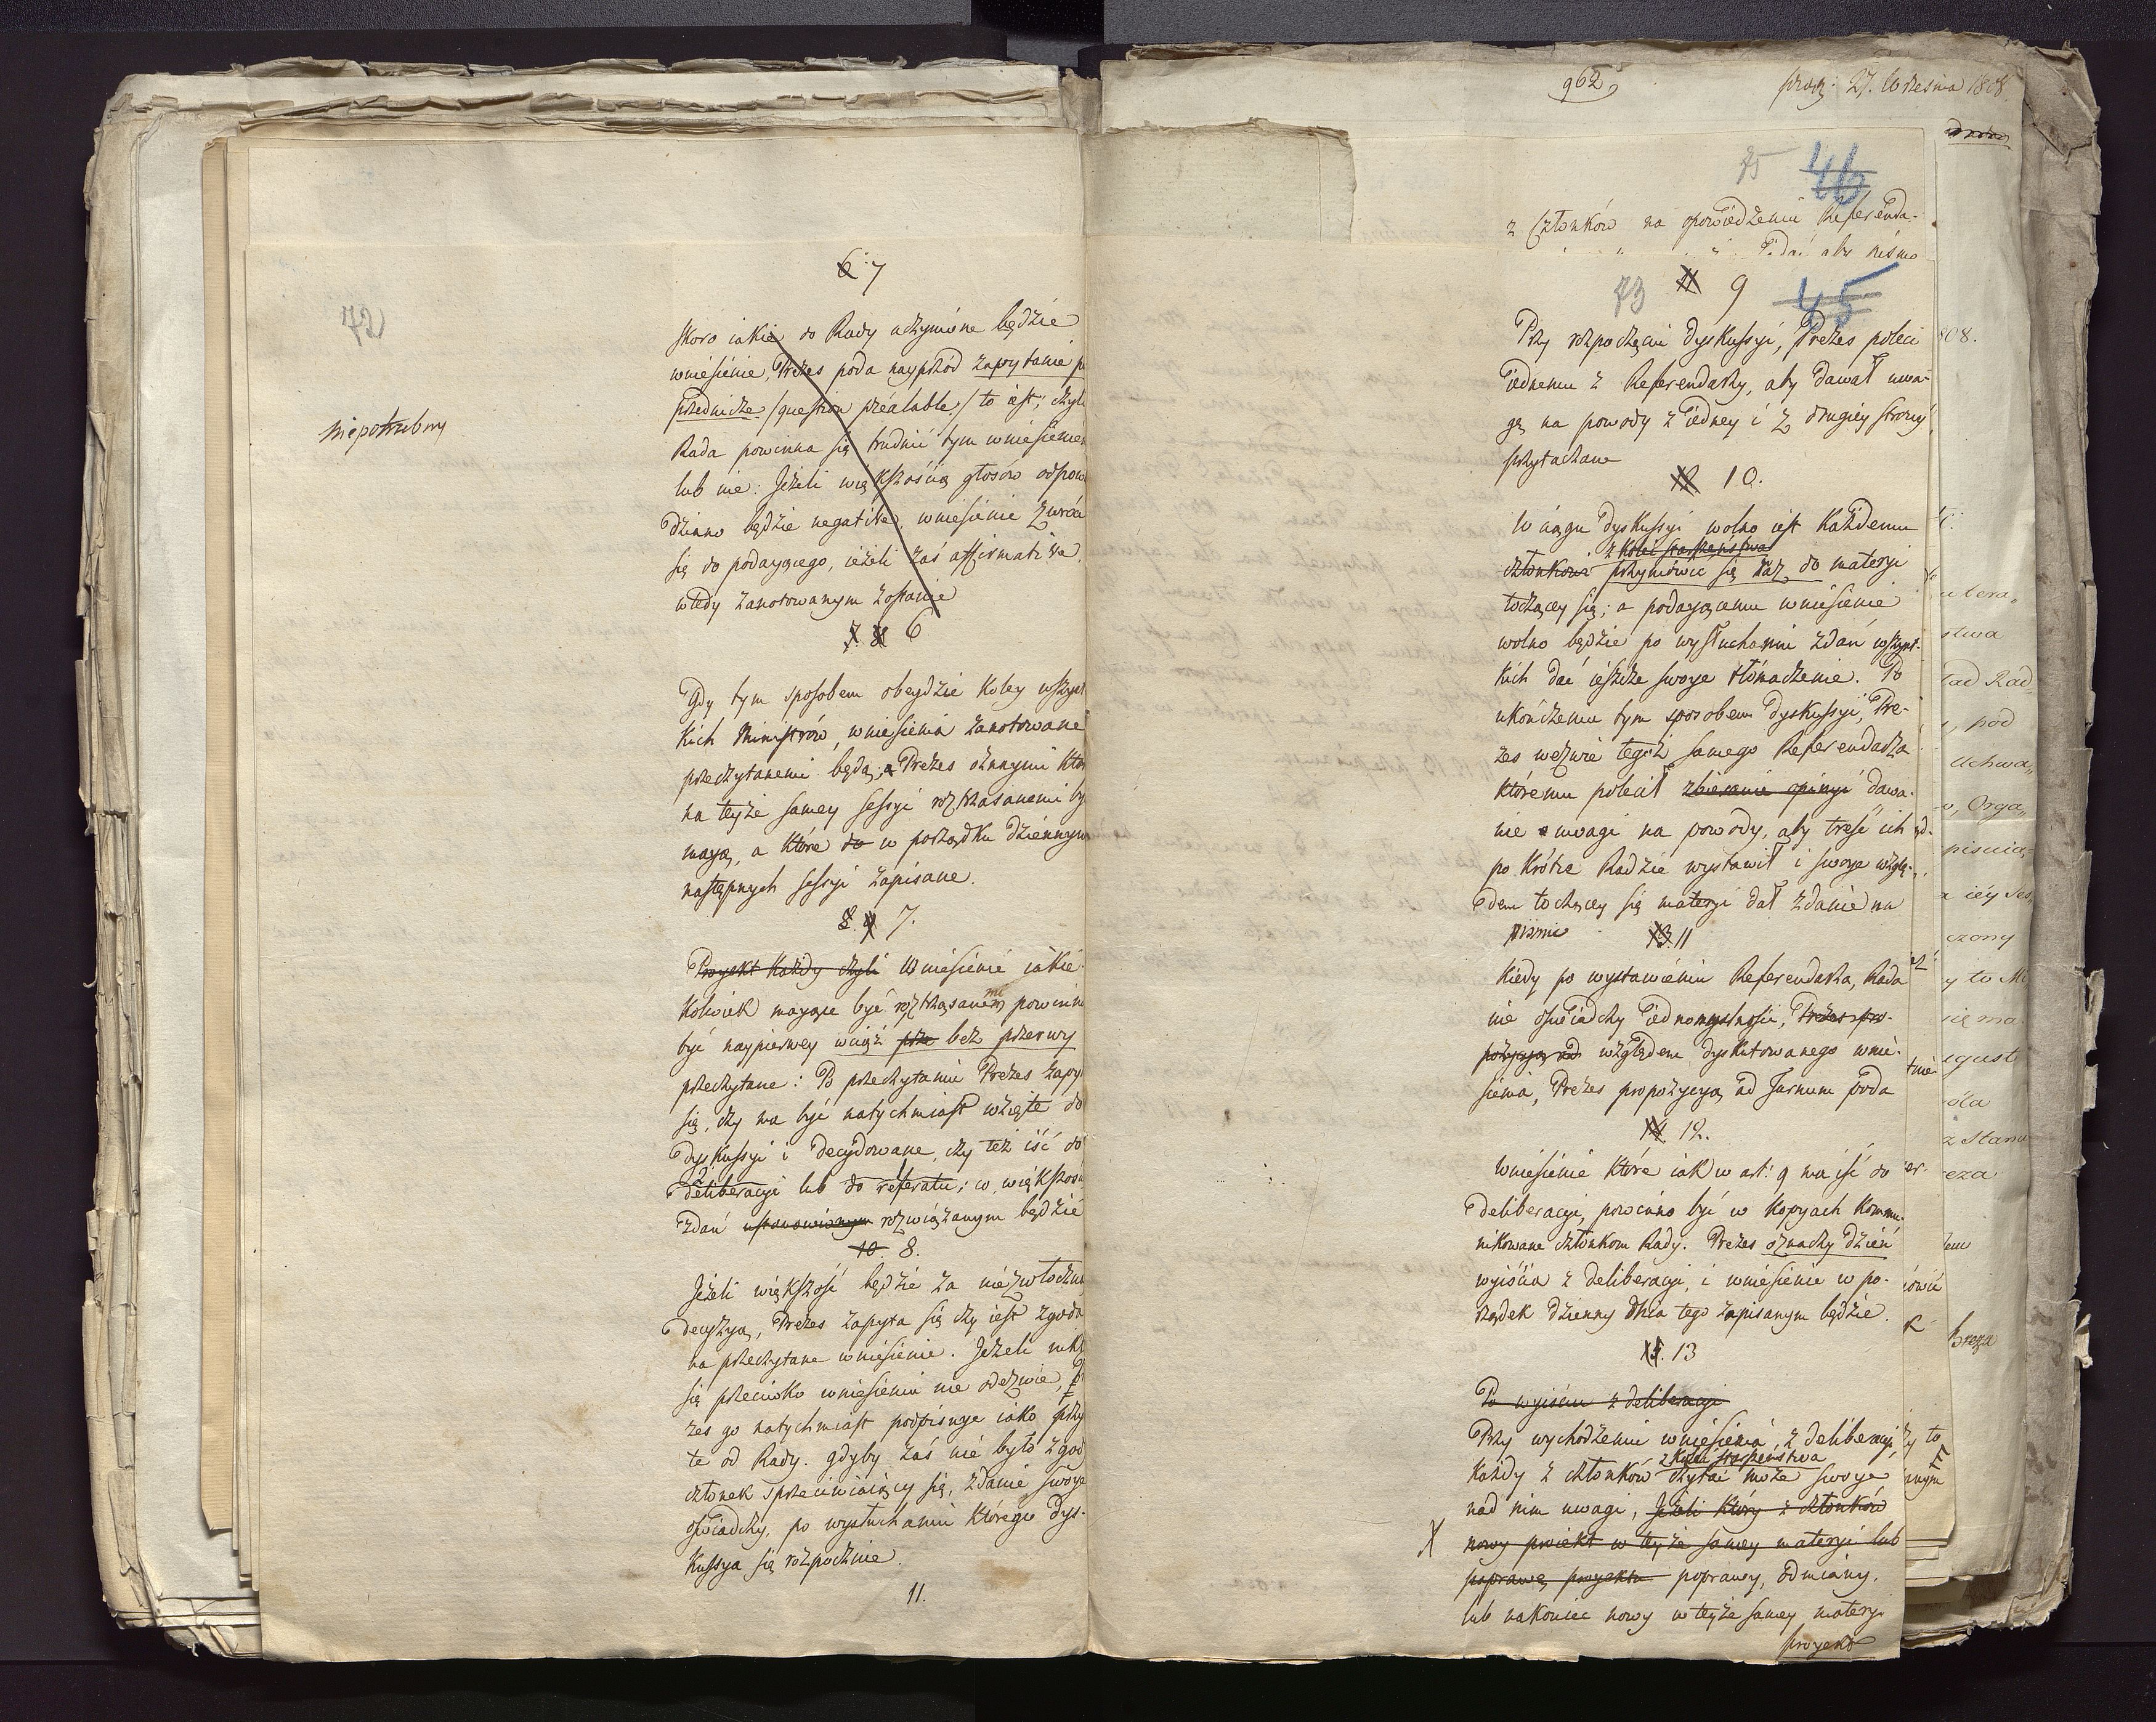 72
niepotrzebny
6 7
Skoro iakie do Rady uczynione będzie
wniesienie, Prezes poda nayprzód zapytanie p
przednicze /question préalable/ to iest; czyli
Rada powinna się trudnić tym wniesieniem
lub nie: Jeżeli większością głosów odpow
dziano będzie negative, wniesienie zwróci
się do podaiącego, ieżeli zaś affirmative,
wtedy zanotowanym zostanie
7. 8 6
Gdy tym sposobem obeydzie koley wszyst
kich Ministrów, wniesienia zanotowane
przeczytanemi będą; a Prezes oznaymi któ
na teyże samey sessyi roztrzasanemi by
maią, a które do w porządku dziennym
następnych sessyi zapisane.
8. 9 7.
Proyekt każdy czyli Wniesienie iakie
kolwiek maiące być roztrząsanem powinno
być naypierwey wciąż prze bez przerwy
przeczytane: Po przeczytaniu Prezes zapy
się, czy ma być natychmiast wzięte do
dyskussyi i decydowane, czy też iść do
deliberacyi lub do referatu; co większos
zdań ustanowionym rozwiązanym będzie
10. 8.
Jeżeli większość będzie za niezwłoczną
decyzyą, Prezes zapyta się czy iest zgoda
na przeczytane wniesienie. Jeżeli nikt
się przeciwko wniesieniu nie odezwie, P
zes go natychmiast podpisuye iako przy
te od Rady. gdyby zaś nie było zgod
członek sprzeciwiaiący się, zdanie swoye
oświadczy, po wysłuchaniu którego dys-
kussya się rozpocznie.
11.
962
27. Września 1808.
75 46
z Członków na opowiedzeniu Referenda-
aby pismo
73 11 9 45
Przy rozpoczęciu dyskussyi, Prezes poleci
iednemu z Referendarzy, aby dawał uwa-
gę na powody z iedney i z drugiey strony
przytaczane
12 10.
W ciągu dyskussyi wolno iest każdemu
z kolei starszeństwa
członkowi przymówić się raz do materyi
toczącey się; a podaiącemu wniesienie
wolno będzie po wysłuchaniu zdań wszyst-
kich dać ieszcze swoye tłómaczenie. Po
ukończeniu tym sposobem dyskussyi, Pre-
zes wezwie tegoż samego Referendarza
któremu polecił zbieranie opinyi dawa-
nie uwagi na powody, aby treść ich
po krótce Radzie wystawił i swoye wzglę-
dem toczącey się materyi dał zdanie na
piśmie
13. 11
Kiedy po wystawieniu Referendarza, Rada
nie oświadczy iednomyślności, Prezes pro-
pozycyą ad względem dyskutowanego wnie-
sienia, Prezes propozycyą ad Turnum poda
14 12.
Wniesienie które iak w art: 9 ma iść do
deliberacyi, powinno być w kopyach kommu-
nikowane członkom Rady. Prezes oznaczy dzień
wyiścia z deliberacyi, i wniesienie w po-
rządek dzienny dnia tego zapisanym będzie.
15. 13
Po wyiściu z deliberacyi
Przy wychodzeniu wniesienia z deliberacyi,
z kolei starszeństwa
każdy z członków czytać może swoye
nad nim uwagi, Jeżeli który z członków
X nowy proiekt w teyże samey materyi lub
poprawę proyektu poprawy, odmiany,
lub nakoniec nowy w teyże samey materyi
proyekt
808.
stwa
Rad
pod
Uchwa„
Orga„
iey Ses
czony
to
się ma
ẓ to
Breza